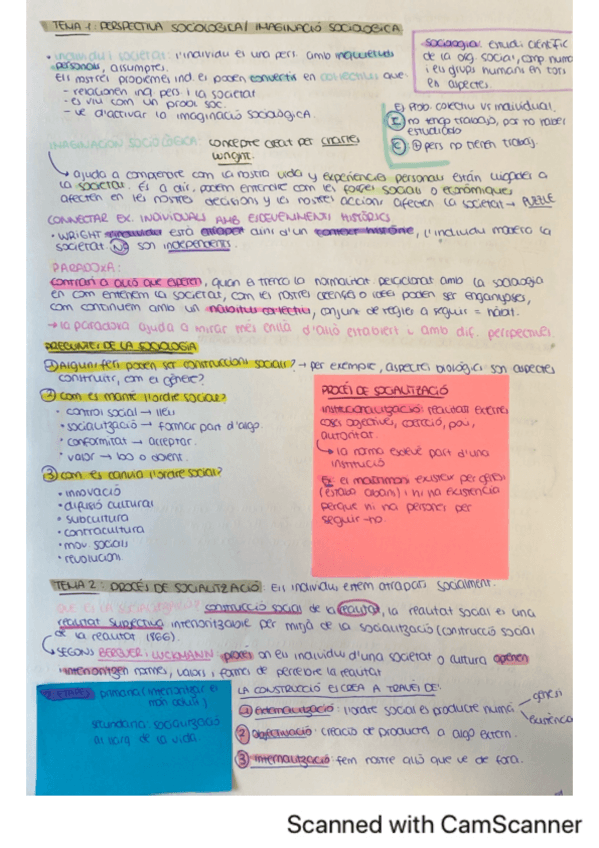 TEMA 1: PERSPECTIVA SOCIOLÒGICA / IMAGINACIÓ SOCIOLÒGICA
· individu i societat: l'individu és una pers. amb inquietuds
personals, assumptes.
Els nostres problemes ind. es poden convertir en col·lectius que:
- relacionen ing. pers i la societat
- es viu com un probl soc.
- ve d'activar la imaginació sociològica.
Sociologia: estudi científic
de la org. social, comp humà
i els grups humans en tots
els aspectes.
Ej Prob. colectiu vs individual.
I no tengo trabajo, por no haber
estudiado
C ⊕ pers no tienen trabaj.
IMAGINACION SOCIOLÒGICA: concepte creat per Charles
Wright.
ajuda a comprendre com la nostra vida y experiències personals estàn lligades a
la societat. És a dir, podem entendre com les forces socials o econòmiques
afecten en les nostres decisions y les nostres accions afecten la societat → PUZLE
CONNECTAR EX. INDIVIDUALS AMB ESDEVENIMENTS HISTÒRICS
· WRIGHT individu està
dins d'un context històric, l'individu modela la
societat. No són independents.
PARADOXA:
contrari a allò que esperem, quan es trenca la normalitat. Relacionat amb la sociologia
en com entenem la societat, com les nostres creences o idees poden ser enganyoses,
com continuem amb un hàbitus col·lectiu, conjunt de regles a seguir = hàbit.
→ la paradoxa ajuda a mirar més enllà d'allò establert i amb dif. perspectives.
PREGUNTES DE LA SOCIOLOGIA
1 Alguns fets poden ser construccions socials? → per exemple, aspectes biològics són aspectes
construïts, com el gènere?
2 com es manté l'ordre social?
· control social → lleis
· socialització → formar part d'algo.
· conformitat → acceptar.
· valor → bo o dolent.
3 com es canvia l'ordre social?
· innovació
· difusió cultural
· subcultura
· contracultura
· mov. socials
· revolucions.
PROCÉS DE SOCIALITZACIÓ
Institucionalització: realitat externa
coses objectives, coerció, pau,
autoritat.
la norma esdevé part d'una
institució
Ex: el matrimoni existeix per gènesi
(estado abans) i hi ha existència
perquè hi ha persones per
seguir-ho.
TEMA 2: PROCÉS DE SOCIALITZACIÓ: Els individus estem atrapats socialment.
QUE ES LA SOCIALITZACIÓ? construcció social de la realitat, la realitat social és una
realitat subjectiva interioritzable per mitjà de la socialització (construcció social
de la realitat 1966).
SEGONS BERGUER i LUCKMANN: procés on els individus d'una societat o cultura aprenen
i interioritzen normes, valors i formes de percebre la realitat
2 ETAPES: primaria (interioritzar el
món adult)
secundària: socialització
al llarg de la vida.
LA CONSTRUCCIÓ ES CREA A TRAVÉS DE:
1 Externalització: l'ordre social és producte humà
gènesi
existència
2 objectivació: creació de productes a algo extern.
3 internalització: fem nostre allò que ve de fora.
Scanned with CamScanner